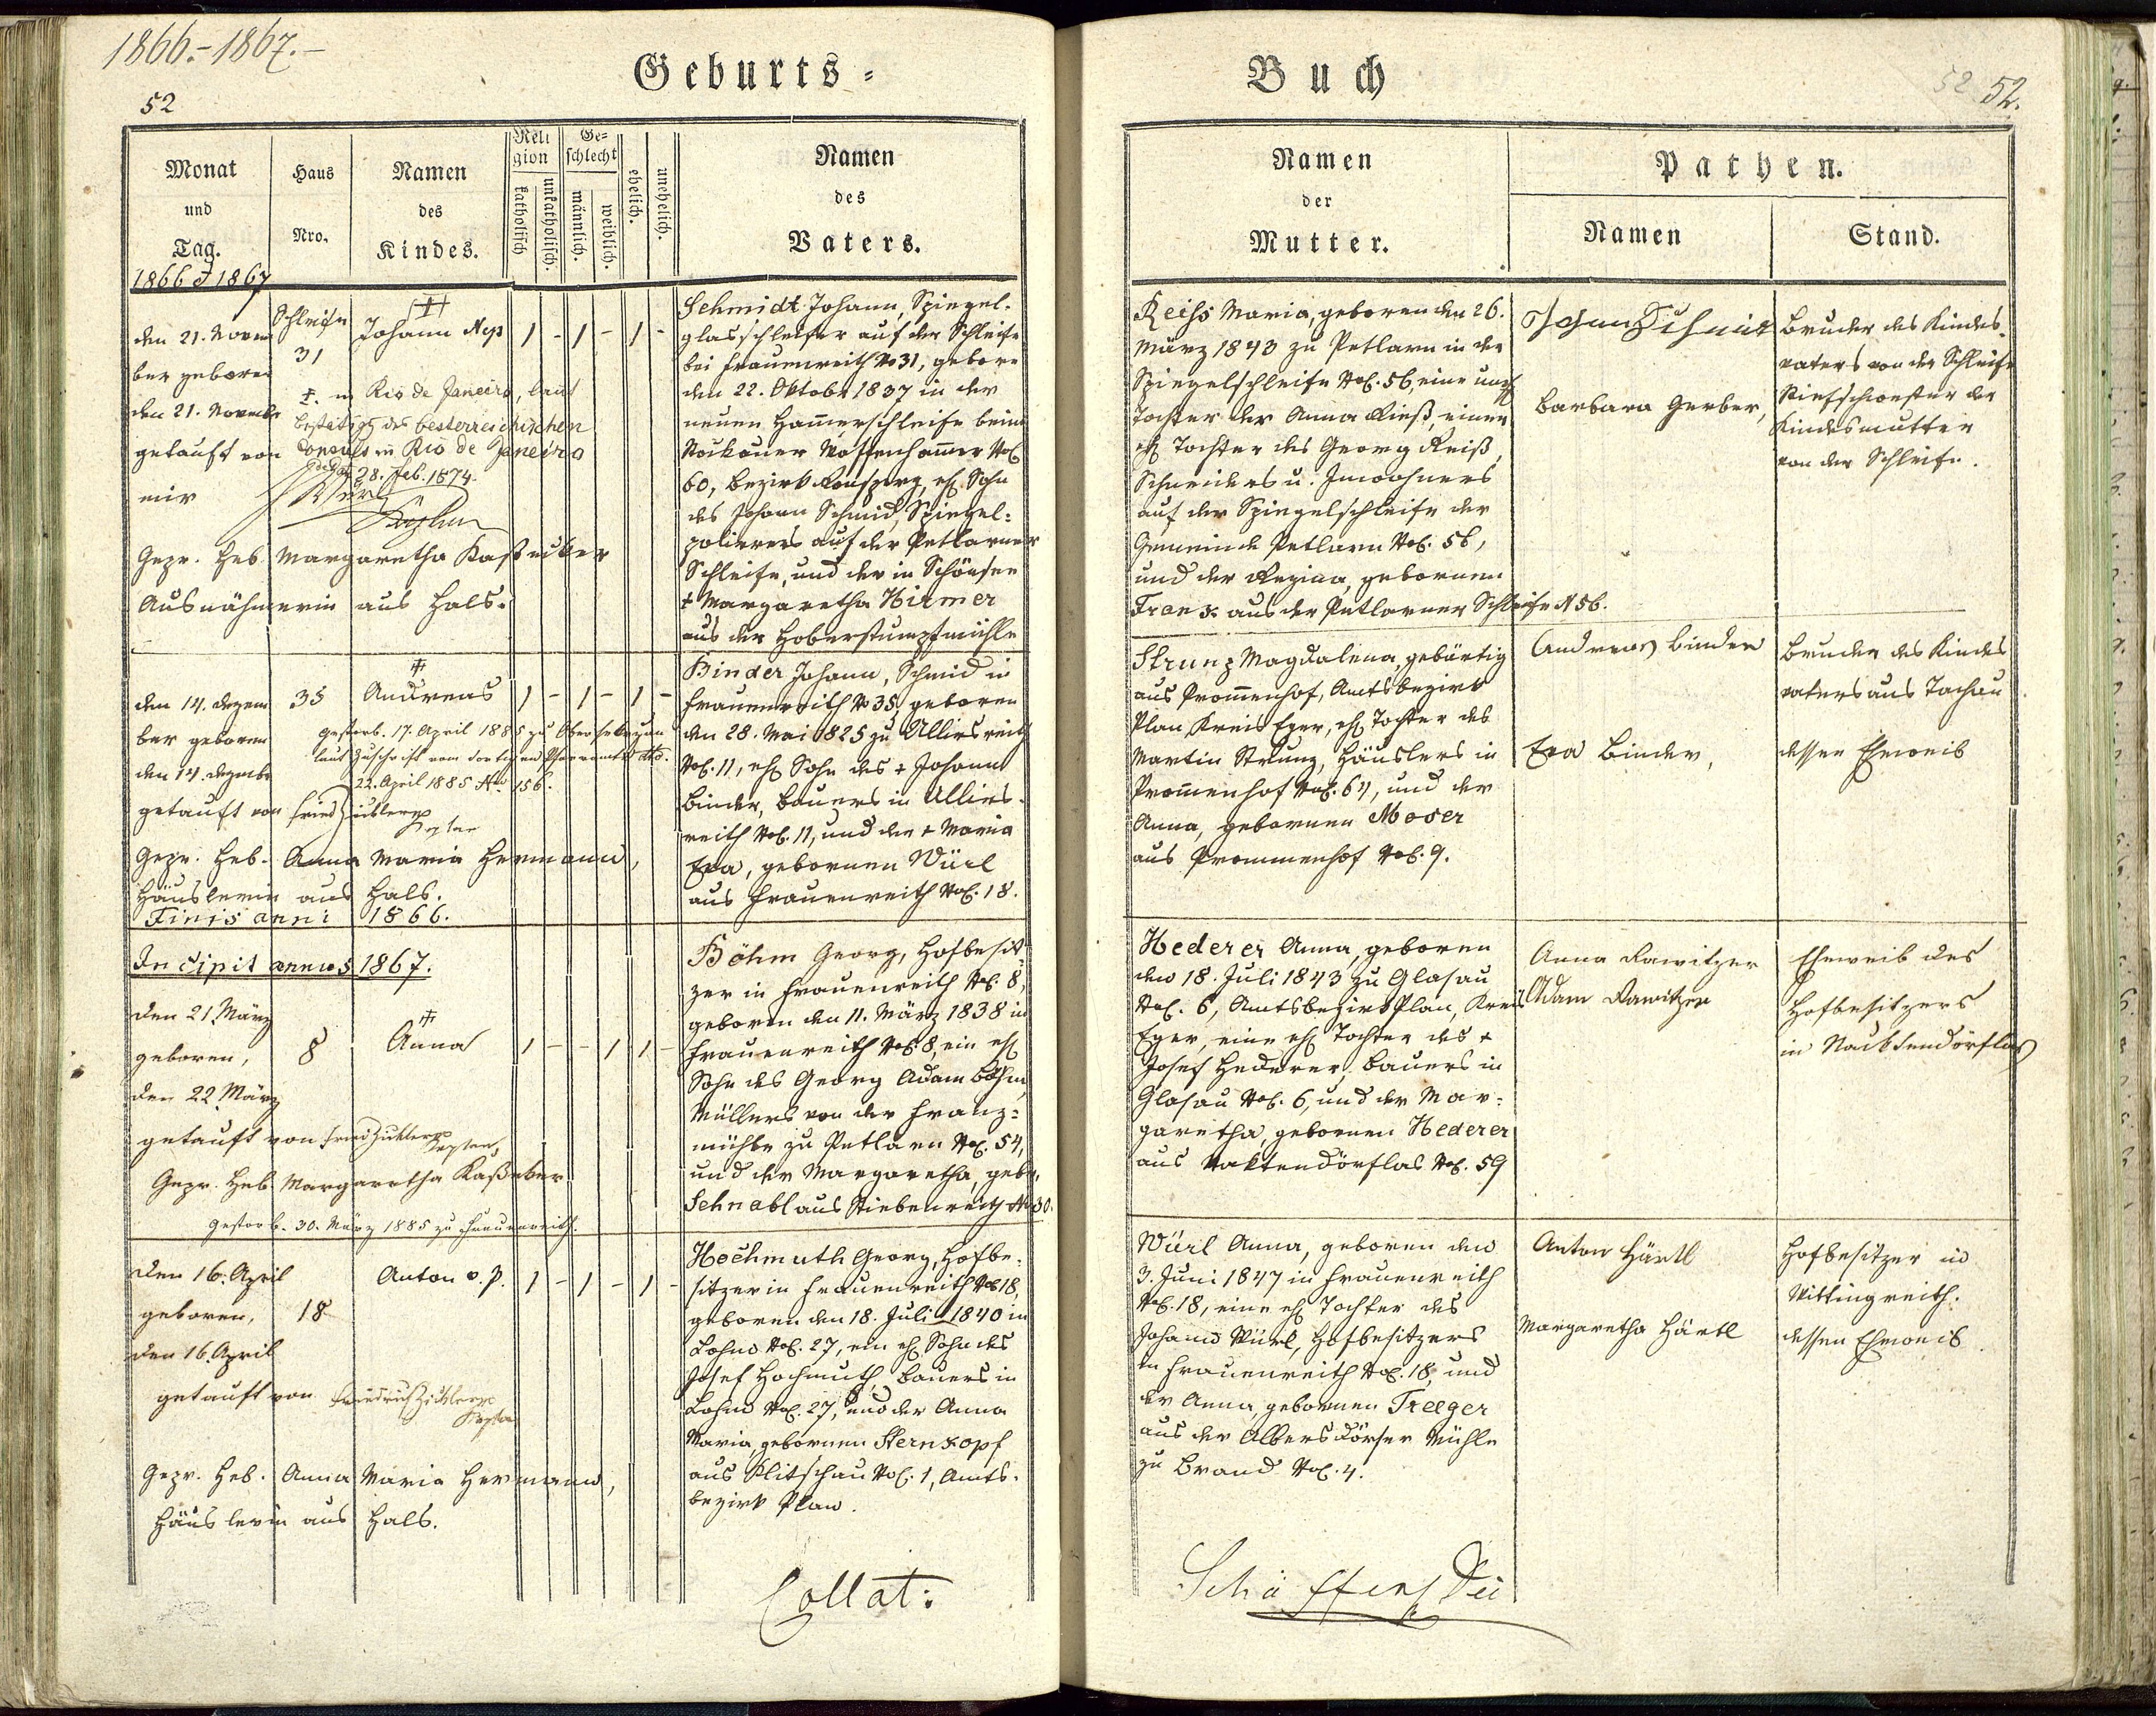 1866.-1867.-
Geburts-
Buch
52
52 52.
Monat
und
Tag.
1866 & 1867
Haus
Nro.
Namen
des
Kindes.
Religion
katholisch.
unkatholisch.
Geschlecht
männlich.
weiblich.
ehelich.
unehelich.
Namen
des
Vaters.
Namen
der
Mutter.
Pathen.
Namen
Stand.
den 21. Novem
ber geboren
den 21. Novembr
getauft von
mir
Schleife
31
Johann Nep
1 - 1 - 1 -
†. in Rio de Janeiro, laut
Bestätigg des österreichischen
Consuls in Rio de Janeiro
28. Feb. 1874.
Gepr. Heb. Margaretha
Ausnähmerin aus Hals.
Schmidt Johann, Spiegel-
glasschleifer auf der Schleife
bei Frauenreith No 31, geboren
den 22. Oktober 1837 in der
neuen Hamerschleife beim
Waffenhamer NoC.
60, Bezirk Ronsperg, ehl Sohn
des Johann Schmid, Spiegel-
polierers auf der Petlarner
Schleife, und der in Schönsee
† Margaretha Hirmer
aus der Hoberstumpfmühle
Reiss Maria, geboren den 26.
März 1843 zu Petlarn in der
Spiegelschleife NoC. 56, eine
Tochter der Anna Rieß, einer
ehl Tochter des Georg Reiß,
Schneiders u. Inwohners
auf der Spiegelschleife der
Gemeinde Petlarn NoC. 56,
und der Regina, gebornen
Frank aus der Petlarner Schleife N 56.
Johann Schmidt
Barbara Gerber,
Bruder des Kindes-
vaters von der Schleife
Stiefschwester der
Kindesmutter
von der Schleife.
den 14. Dezem
ber geboren
den 14. Dezembr
getauft von
35
Andreas
1 - 1 - 1 -
gestorb. 17. April 1885 zu
laut Zuschrift vom dortigen Pfarramte dto.
22. April 1885 No. 156.
Gepr. Heb. Anna Maria Hermann,
Häuslerin aus Hals.
Finis anni 1866.
Binder Johann, Schmid in
Frauenreith No 35, geboren
den 28. Mai 1825 zu Ulliersreith
NoC. 11, ehl Sohn des † Johann
Binder, Bauers in Ulliers-
reith NoC. 11, und der † Maria
Eva, gebornen Würl
aus Frauenreith NoC. 18.
Strunz Magdalena, gebürtig
aus Promenhof, Amtsbezirk
Plan, Kreis Eger, ehl Tochter des
Martin Strunz, Häuslers in
Promenhof NoC. 64, und der
Anna, gebornen Moser
aus Prommenhof NoC. 9.
Andreas Binder
Eva Binder,
Bruder des Kindes
vaters aus Tachau
dessen Eheweib
Incipit annus 1867.
den 21. März
geboren,
den 22. März
getauft von
8
Anna
1 - - 1 1 -
Gepr. Heb. Margaretha
gestorb. 30. März 1885 zu Frauenreith.
Böhm Georg, Hofbesit-
zer in Frauenreith NoC. 8,
geboren den 11. März 1838 in
Frauenreith NoC. 8, ein ehl
Sohn des Georg Adam Böhm,
Müllers von der Franz-
mühle zu Petlarn NoC. 54,
und der Margaretha, gebor.
Schnabl aus Stiebenreith No 30.
Hederer Anna, geboren
den 18. Juli 1843 zu Glasau
NoC. 6, Amtsbezirk Plan, Kreis
Eger, eine ehl Tochter des †
Josef Hederer, Bauers in
Glasau NoC. 6, und der Mar-
garetha, gebornen Hederer
aus Naktendörflas NoC. 59
Anna Rawitzer
Adam Rawitzer
Eheweib des
Hofbesitzers
in Naktendörflas
den 16. April
geboren,
den 16. April
getauft von
18
Anton v. P.
1 - 1 - 1 -
Gepr. Heb. Anna Maria Hermann,
Häuslerin aus Hals.
Hochmuth Georg, Hofbe-
sitzer in Frauenreith NoC 18,
geboren den 18. Juli 1840 in
Lohm NoC. 27, ein ehl Sohn des
Josef Hochmuth, Bauers in
Lohm NoC. 27, und der Anna
Maria, gebornen Sternkopf
aus Plitschau NoC. 1, Amts-
bezirk Plan.
Würl Anna, geboren den
3. Juni 1847 in Frauenreith
NoC. 18, eine ehl Tochter des
Johann Würl, Hofbesitzers
in Frauenreith NoC. 18, und
der Anna, gebornen Treeger
aus der Albersdörfer Mühle
zu Brand NoC. 4.
Anton Härtl
Margaretha Härtl
Hofbesitzer in
Wittingreith.
dessen Eheweib.
Collat: